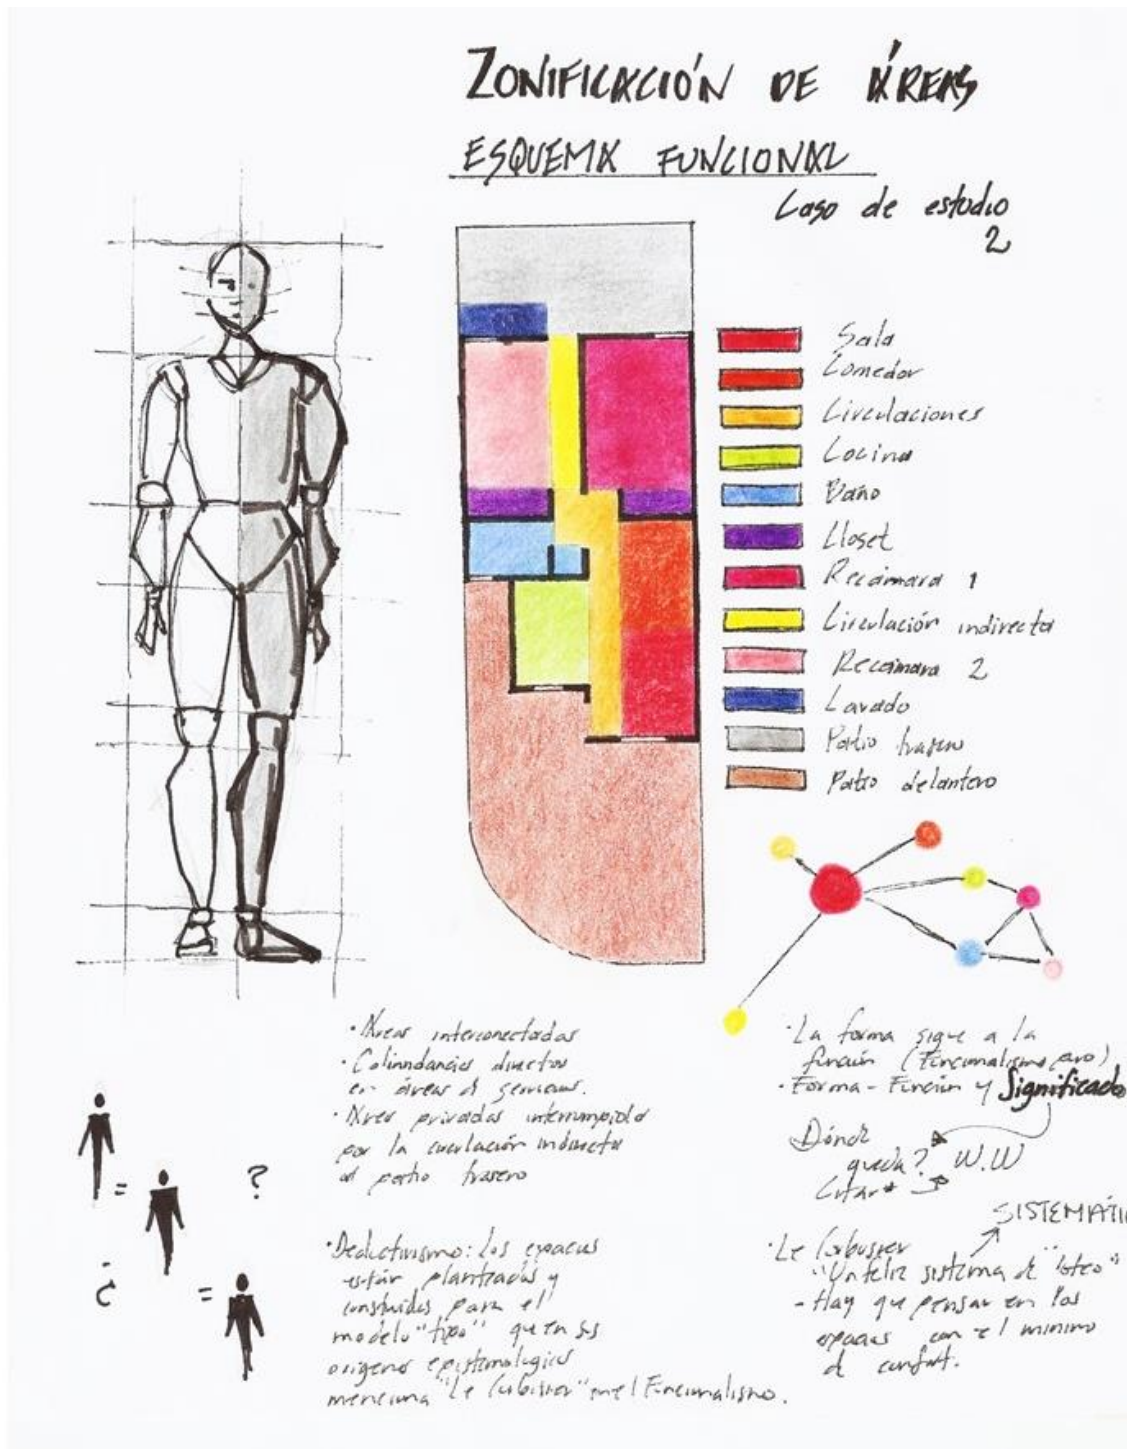 ZONIFICACIÓN DE ÁREAS
ESQUEMA FUNCIONAL
Caso de estudio
2
Sala
Comedor
Circulaciones
Cocina
Baño
Closet
Recámara 1
Circulación indirecta
Recámara 2
Lavado
Patio trasero
Patio delantero
• Áreas interconectadas
• Colindancias directas
en áreas d servicios.
• Área privadas interrumpida
por la circulación indirecta
al patio trasero
= ?
¿ =
• Deductivismo: Los espacios
están planteados y
construidos para el
modelo "tipo" que en sus
origenes epistemologicos
menciona "Le Corbusier" en el Funcionalismo.
• La forma sigue a la
función (Funcionalismo puro)
• Forma - Función y Significado
Dónde
queda? W.W
Citar*
SISTEMÁTI
• Le Corbusier
"Un feliz sistema de "loteo"
- Hay que pensar en los
espacios con el mínimo
d confort.